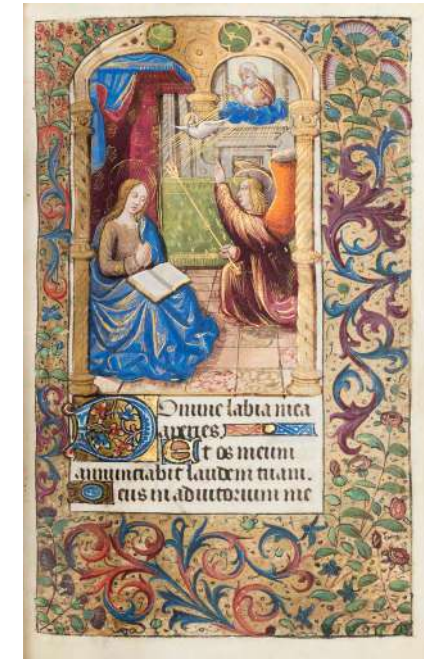 Domine labia mea
aperies
Et os meum
annunciabit laudem tuam.
Deus in adiutorium me